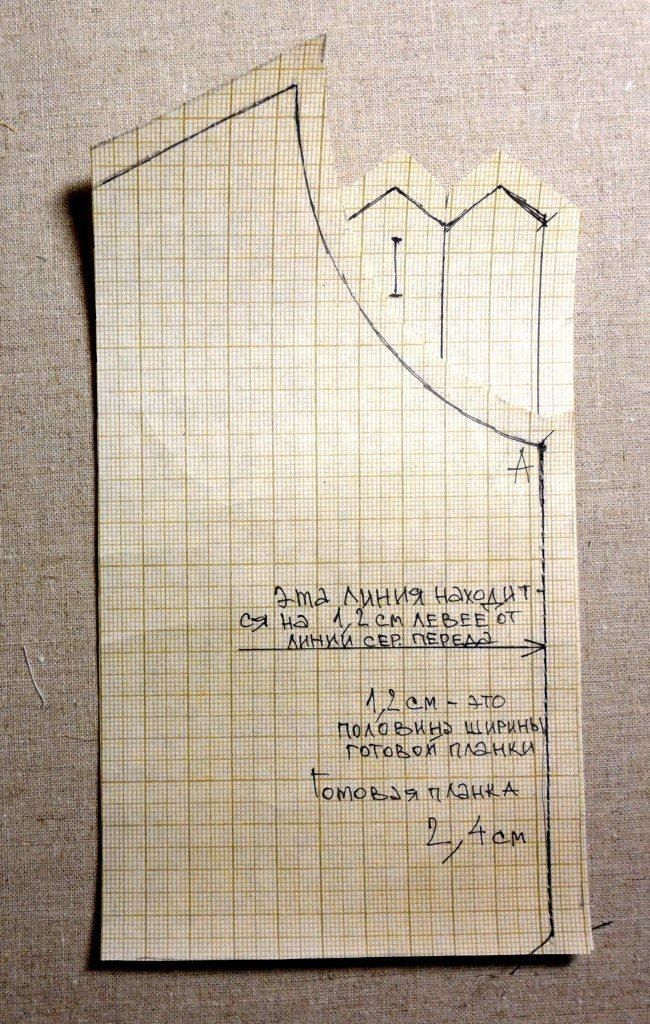 А
Эта линия находит-
ся на 1,2 см левее от
линии сер. переда
1,2 см - это
половина ширины
готовой планки
Готовая планка
2,4 см